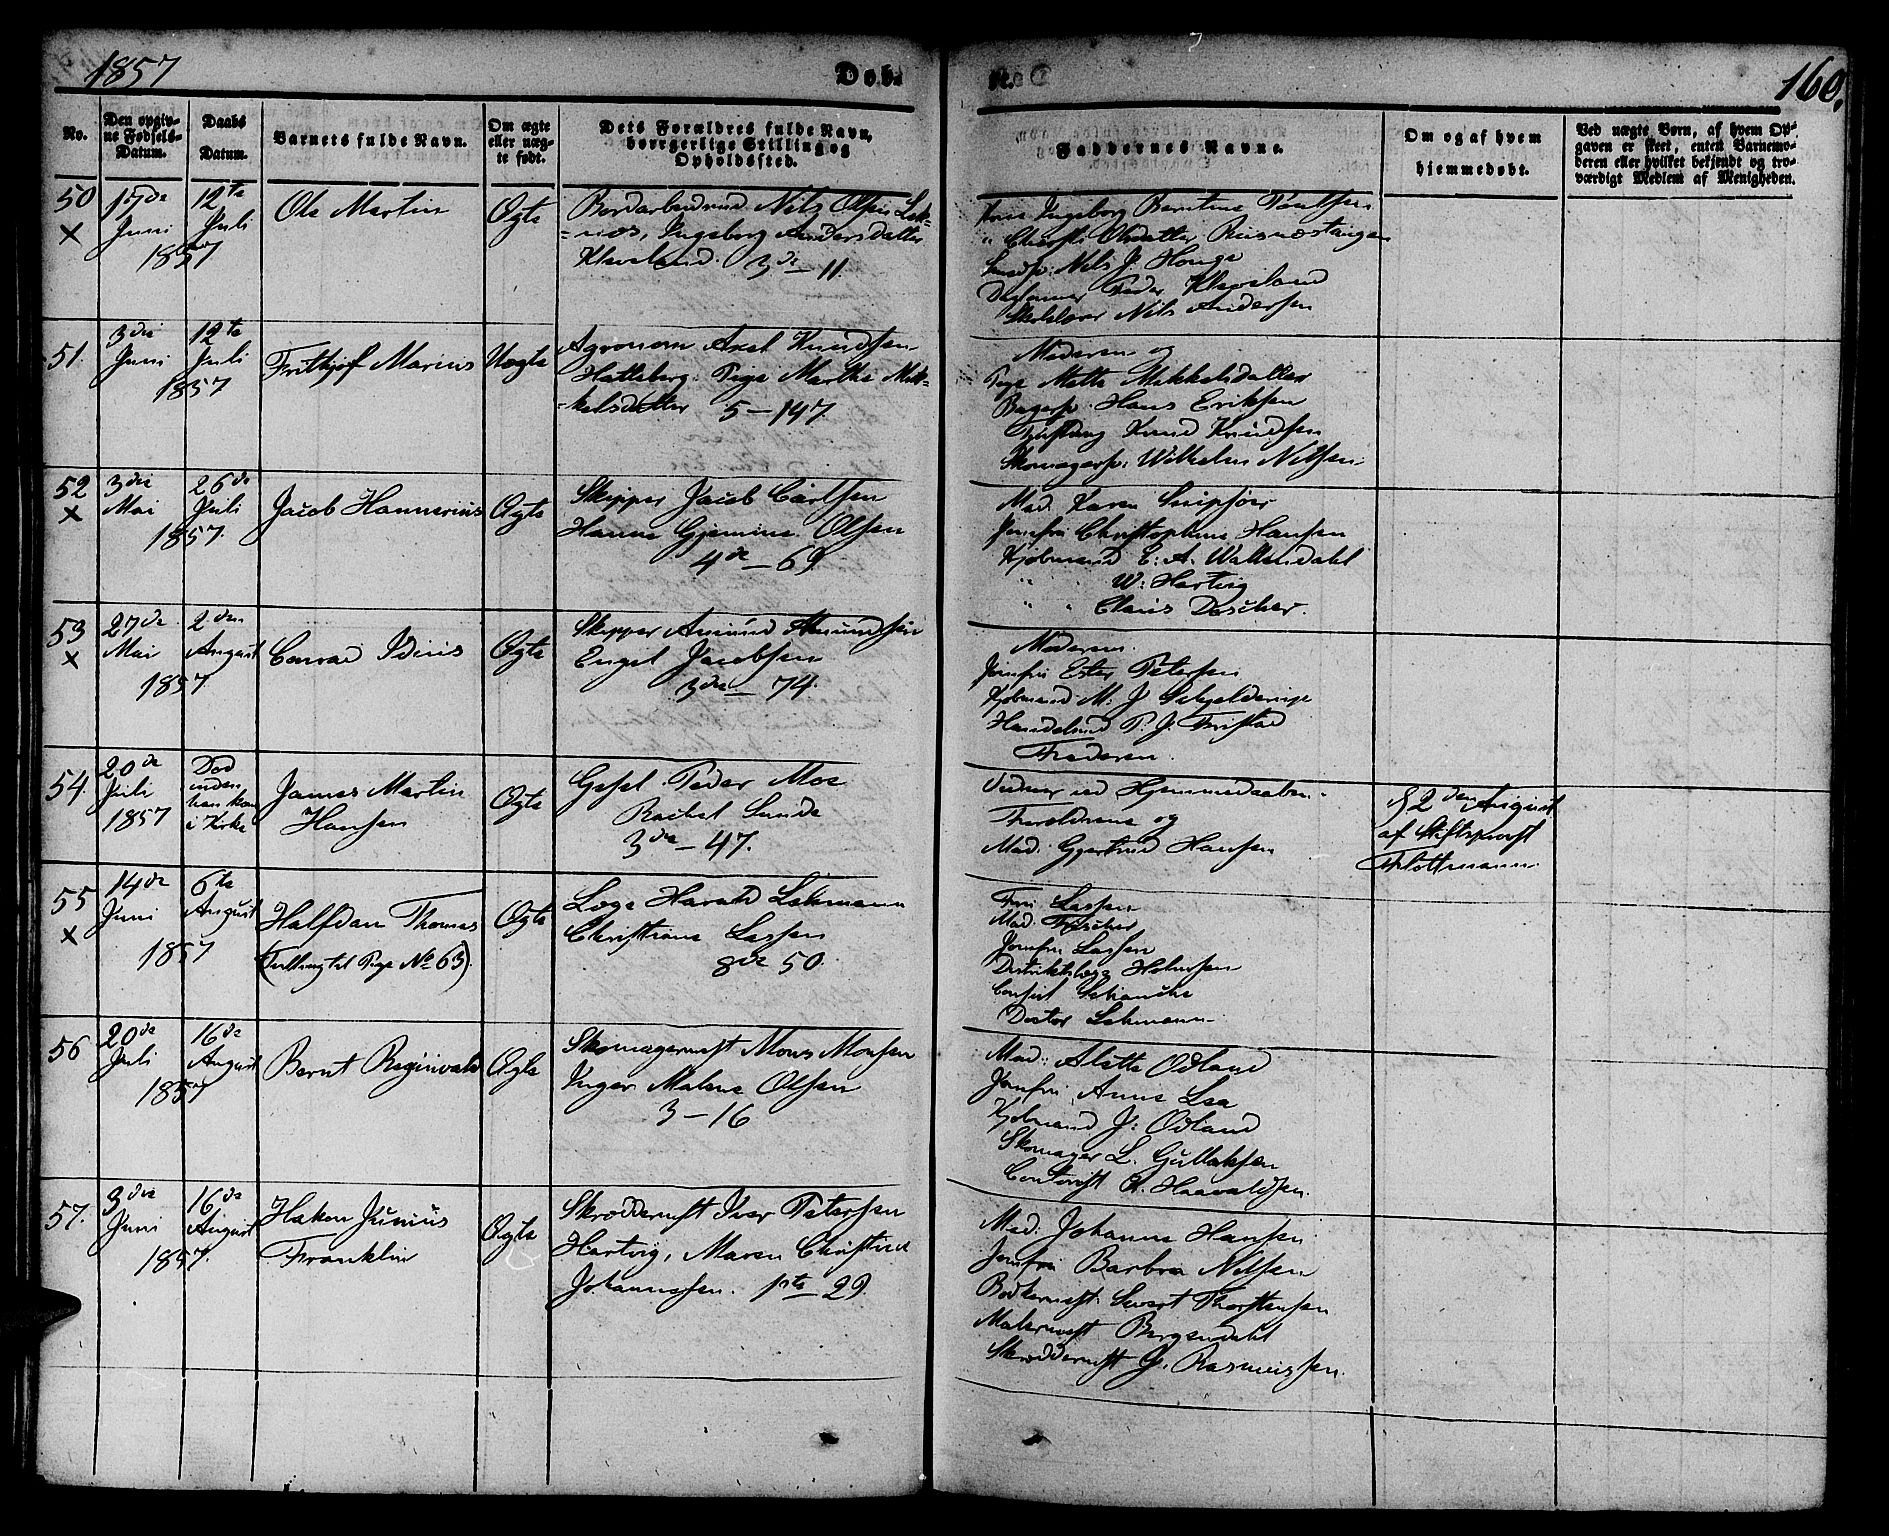 1857
Døb-
te.
160.
No.
Den opgiv-
ne Fødsels-
Datum.
Daabs
Datum.
Barnets fulde Navn.
Om ægte
eller uæg-
te født.
Dets Forældres fulde Navn,
borgerlige Stilling og
Opholdssted.
Faddernes Navne.
Om og af hvem
hjemmedøbt.
Ved uægte Børn, af hvem Op-
gaven er skeet, enten Barnemo-
deren eller hvilket bekjendt og tro-
værdigt Medlem af Menigheden.
50
×
17de
Juni
12te
Juli
1857
Ole Martin
Ægte
Nils Olsen
Ingeborg Andersdatter
Kleveland. 3de – 11.
Ingeborg Berntine Poulsen
Olsdatter
Nils J. Houge
Peder Kleveland
Nils Andersen
51.
3die
Juni
12te
Juli
1857
Frithjof Marius
Uægte
Agronom Axel Knudsen
Hatleberg. Pige Marthe Mik-
kelsdatter 5 – 147.
Moderen og
Pige Mette Mikkelsdatter
Bagersv. Hans Eriksen
Knud Knudsen
Skomagersv. Wilhelm Nilsen
52
×
3die
Mai
26de
Juli
1857.
Jacob Hannerius
Ægte
Skipper Jacob Carlsen
Hanne Gjemine Olsen
4de – 69
Mad. Karen
Jomfru Christophine Hansen
Kjøbmand E. A. Wallendahl
" W. Hartvig
" " Claus
53
×
27de
Mai
2den
August
1857.
Conrad Idius
Ægte
Skipper Amund Amundsen
Engel Jacobsen
3die – 74.
Moderen.
Jomfru Ester Petersen
Kjøbmand M. J. Schjelderup
Handelsmd P. J.
Faderen.
54.
20de
Juli
1857
Død
inden
han kom
i Kirke
James Martin
Hansen
Ægte
Gesel Peder Moe
Rachel Lunde
3die – 47.
Vidner ved Hjemmedaaben.
Forældrene og
Mad. Gjertrud Hansen
§ 2den August
af Stiftsprovst
Flottmann.
55
×
14de
Juni
6te
August
1857
Halfdan Thomas
(Tvilling til Pige No 63).
Ægte
Læge Harald Lehmann
Christiane Lassen
8de 50.
Fru Lassen
Mad.
Jomfru Lassen
Distriktslæge Holmsen
Consul Schancke
Doctor Lehmann.
56
20de
Juli
16de
August
1857
Bernt Reginvald
Ægte
Skomagermst Mons Monsen
Inger Malene Olsen
3 – 16
Mad: Alette Ødland
Jomfru Anne Lea
Kjøbmand J: Ødland
Skomager L. Gullaksen
Haavaldsen.
57.
3die
Juni
16de
August
1857.
Haken Junius
Franklin
Ægte
Skreddermst Iver Petersen
Hartvig, Maren Christine
Johannesen. 1ste – 29
Mad. Johanne Hansen
Jomfru Barbra Nilsen
Bødkermst. Sivert Thorstensen
Malermst Bergendahl
Skreddermst G. Rasmussen.